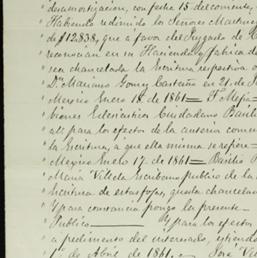 desamortizacion, con fecha 15 del corriente,
" Habiendo redimido los Señores Martinez
" de $12,838, que á favor del Juzgado de
" reconocian en su Hacienda y fabrica de
" sea chancelada la Escritura respectiva
" Dn. Mariano Gomez Castaño en 21. de
" Mexico Enero 18. de 1861 = F. Mejia =
" bienes Eclesiasticos Ciudadano
" all para los efectos de la
" la Escritura, á que ella misma se refiere
" Mexico Enero 17. de 1861 =
" Maria Villela Escribano publico de la
" Escritura de estas fojas, queda chancelada
" Y para constancia pongo la presente
" Publico Y para los efectos
" a pedimento del interesado,
" 1º de Abril de 1861. José